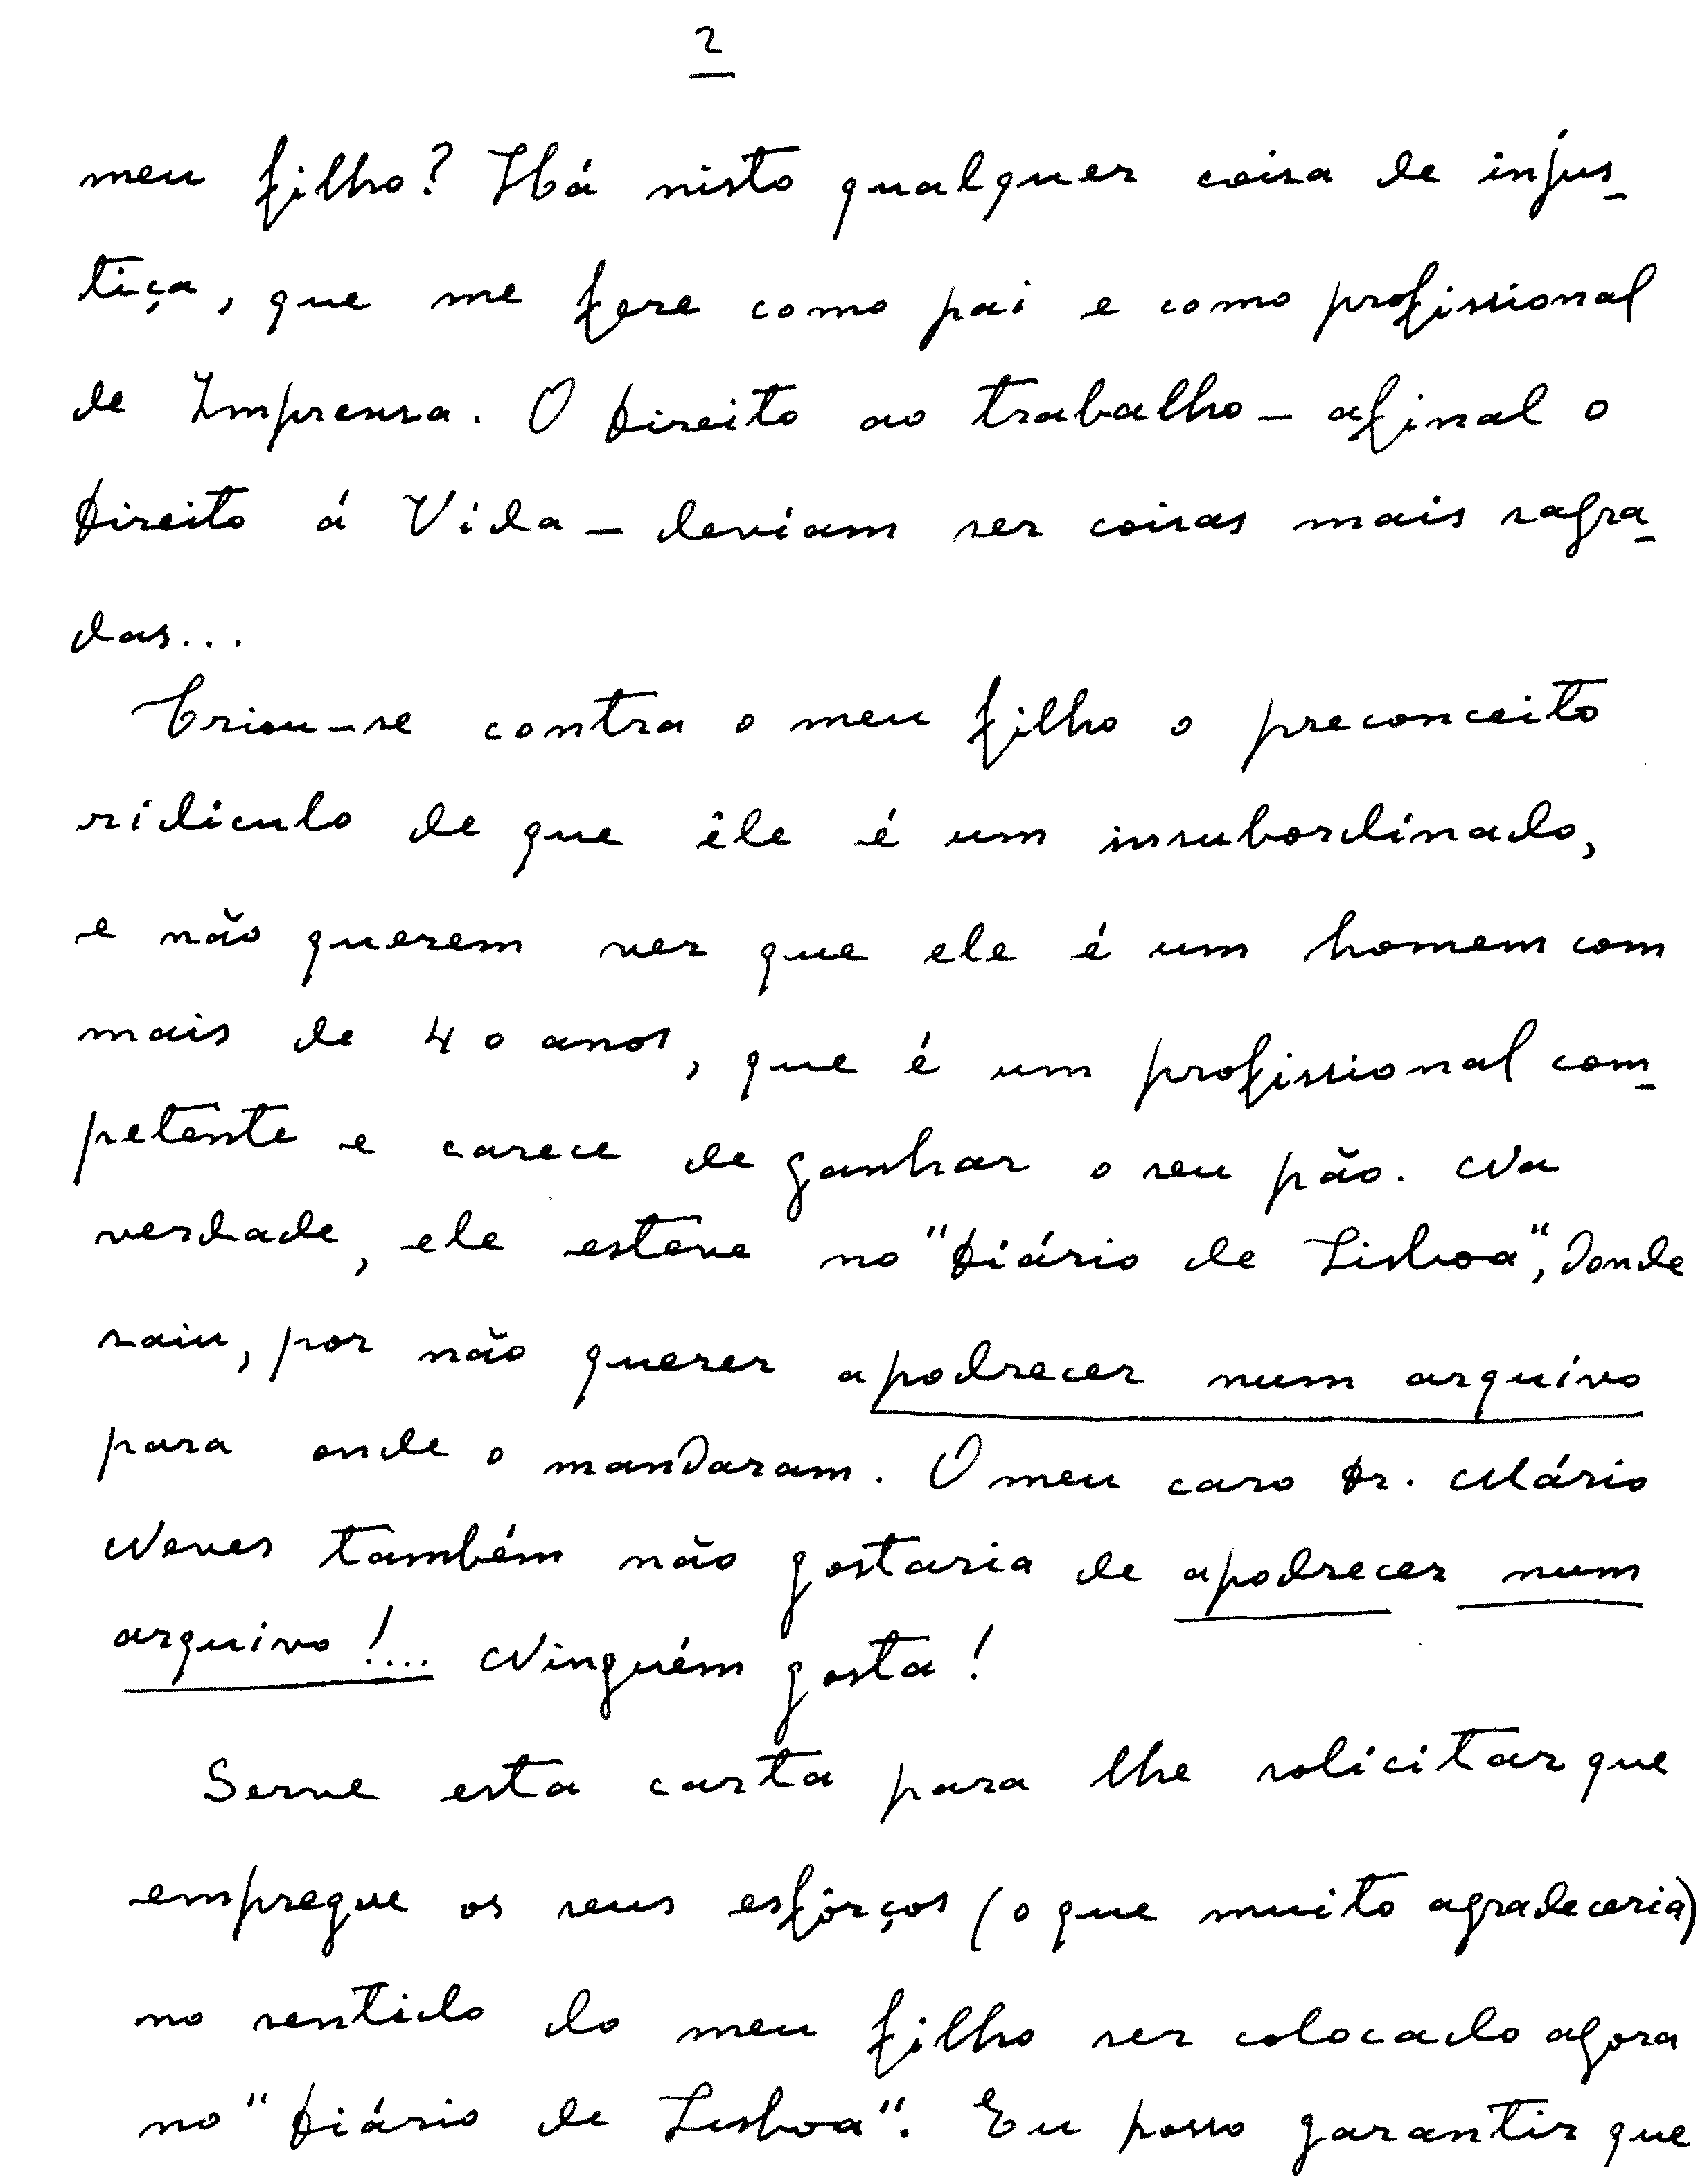 2
meu filho? Há nisto qualquer coisa de injus-
tiça, que me fere como pai e como profissional
de Imprensa. O Direito ao trabalho — afinal o
Direito á Vida — deviam ser coisas mais sagra-
das...
Criou-se contra o meu filho o preconceito
ridículo de que êle é um insubordinado,
e não querem ver que ele é um homem com
mais de 40 anos, que é um profissional com-
petente e carece de ganhar o seu pão. Na
verdade, ele esteve no "Diário de Lisboa", donde
saiu, por não querer apodrecer num arquivo
para onde o mandaram. O meu caro Dr. Mário
Neves também não gostaria de apodrecer num
arquivo!... Ninguém gosta!
Serve esta carta para lhe solicitar que
empregue os seus esfôrços (o que muito agradeceria)
no sentido do meu filho ser colocado agora
no "Diário de Lisboa". Eu posso garantir que